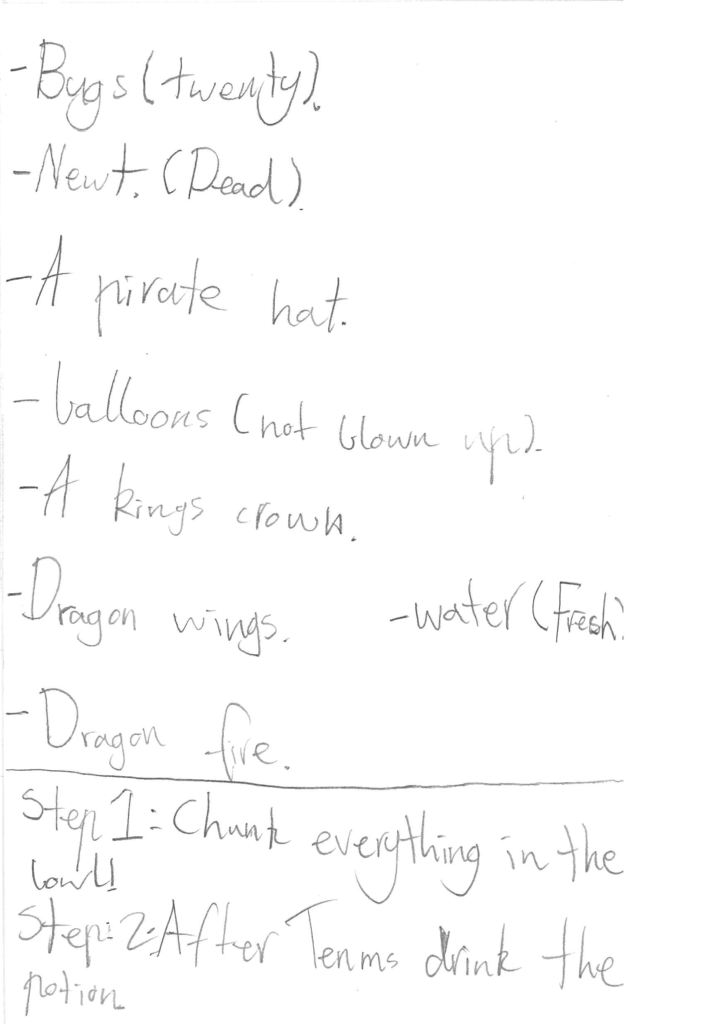 -Bugs (twenty).
-Newt. (Dead).
-A pirate hat.
-balloons (not blown up).
-A kings crown.
-Dragon wings. -water (Fresh)
-Dragon fire.
Step 1: Chunk everything in the
bowl!
Step: 2: After Tenms drink the
potion